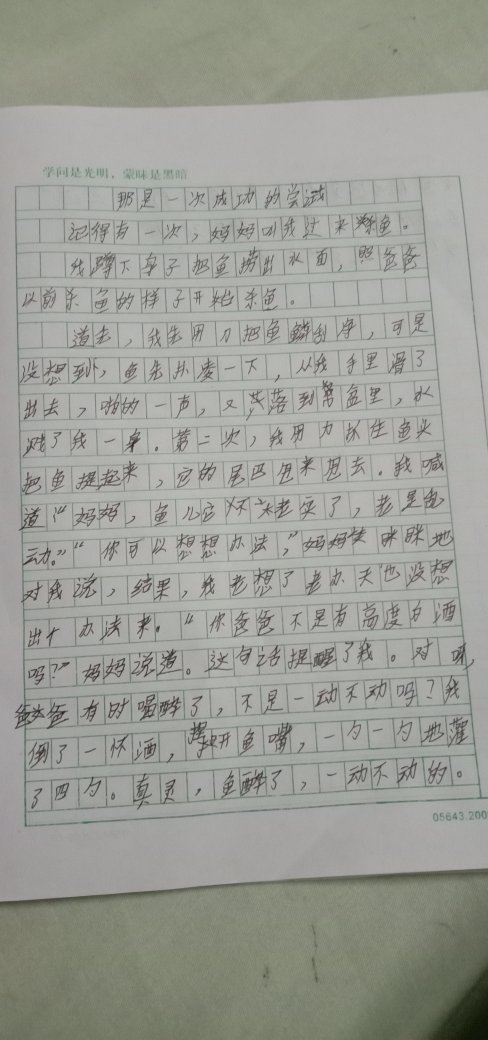 学问是光明，蒙昧是黑暗
那是一次成功的尝试
记得有一次，妈妈叫我过来杀鱼。
我蹲下身子把鱼捞出水面，照爸爸
以前杀鱼的样子开始杀鱼。
道去，我先用刀把鱼鳞刮净，可是
没想到，鱼先扑凌一下，从我手里滑了
出去，啪的一声，又落到盆里，水
溅了我一身。第二次，我用力抓住鱼头
把鱼提起来，它的尾巴甩来甩去。我喊
道“妈妈，鱼儿它太老实了，老是乱
动。”“你可以想想办法，”妈妈笑眯眯地
对我说，结果，我老想了老办天也没想
出个办法来。“你爸爸不是有高度白酒
吗？”妈妈说道。这句话提醒了我。对呀，
爸爸有时喝醉了，不是一动不动吗？我
倒了一怀酒，开鱼嘴，一勺一勺地灌
了四勺。真灵，鱼醉了，一动不动的。
05643.200